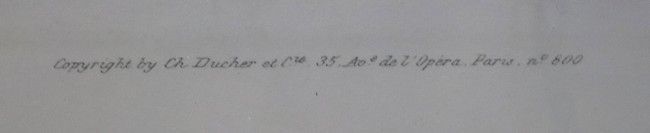 Copyright by Ch. Ducher et Cie. 35, Ave de l'Opéra. Paris. no 800